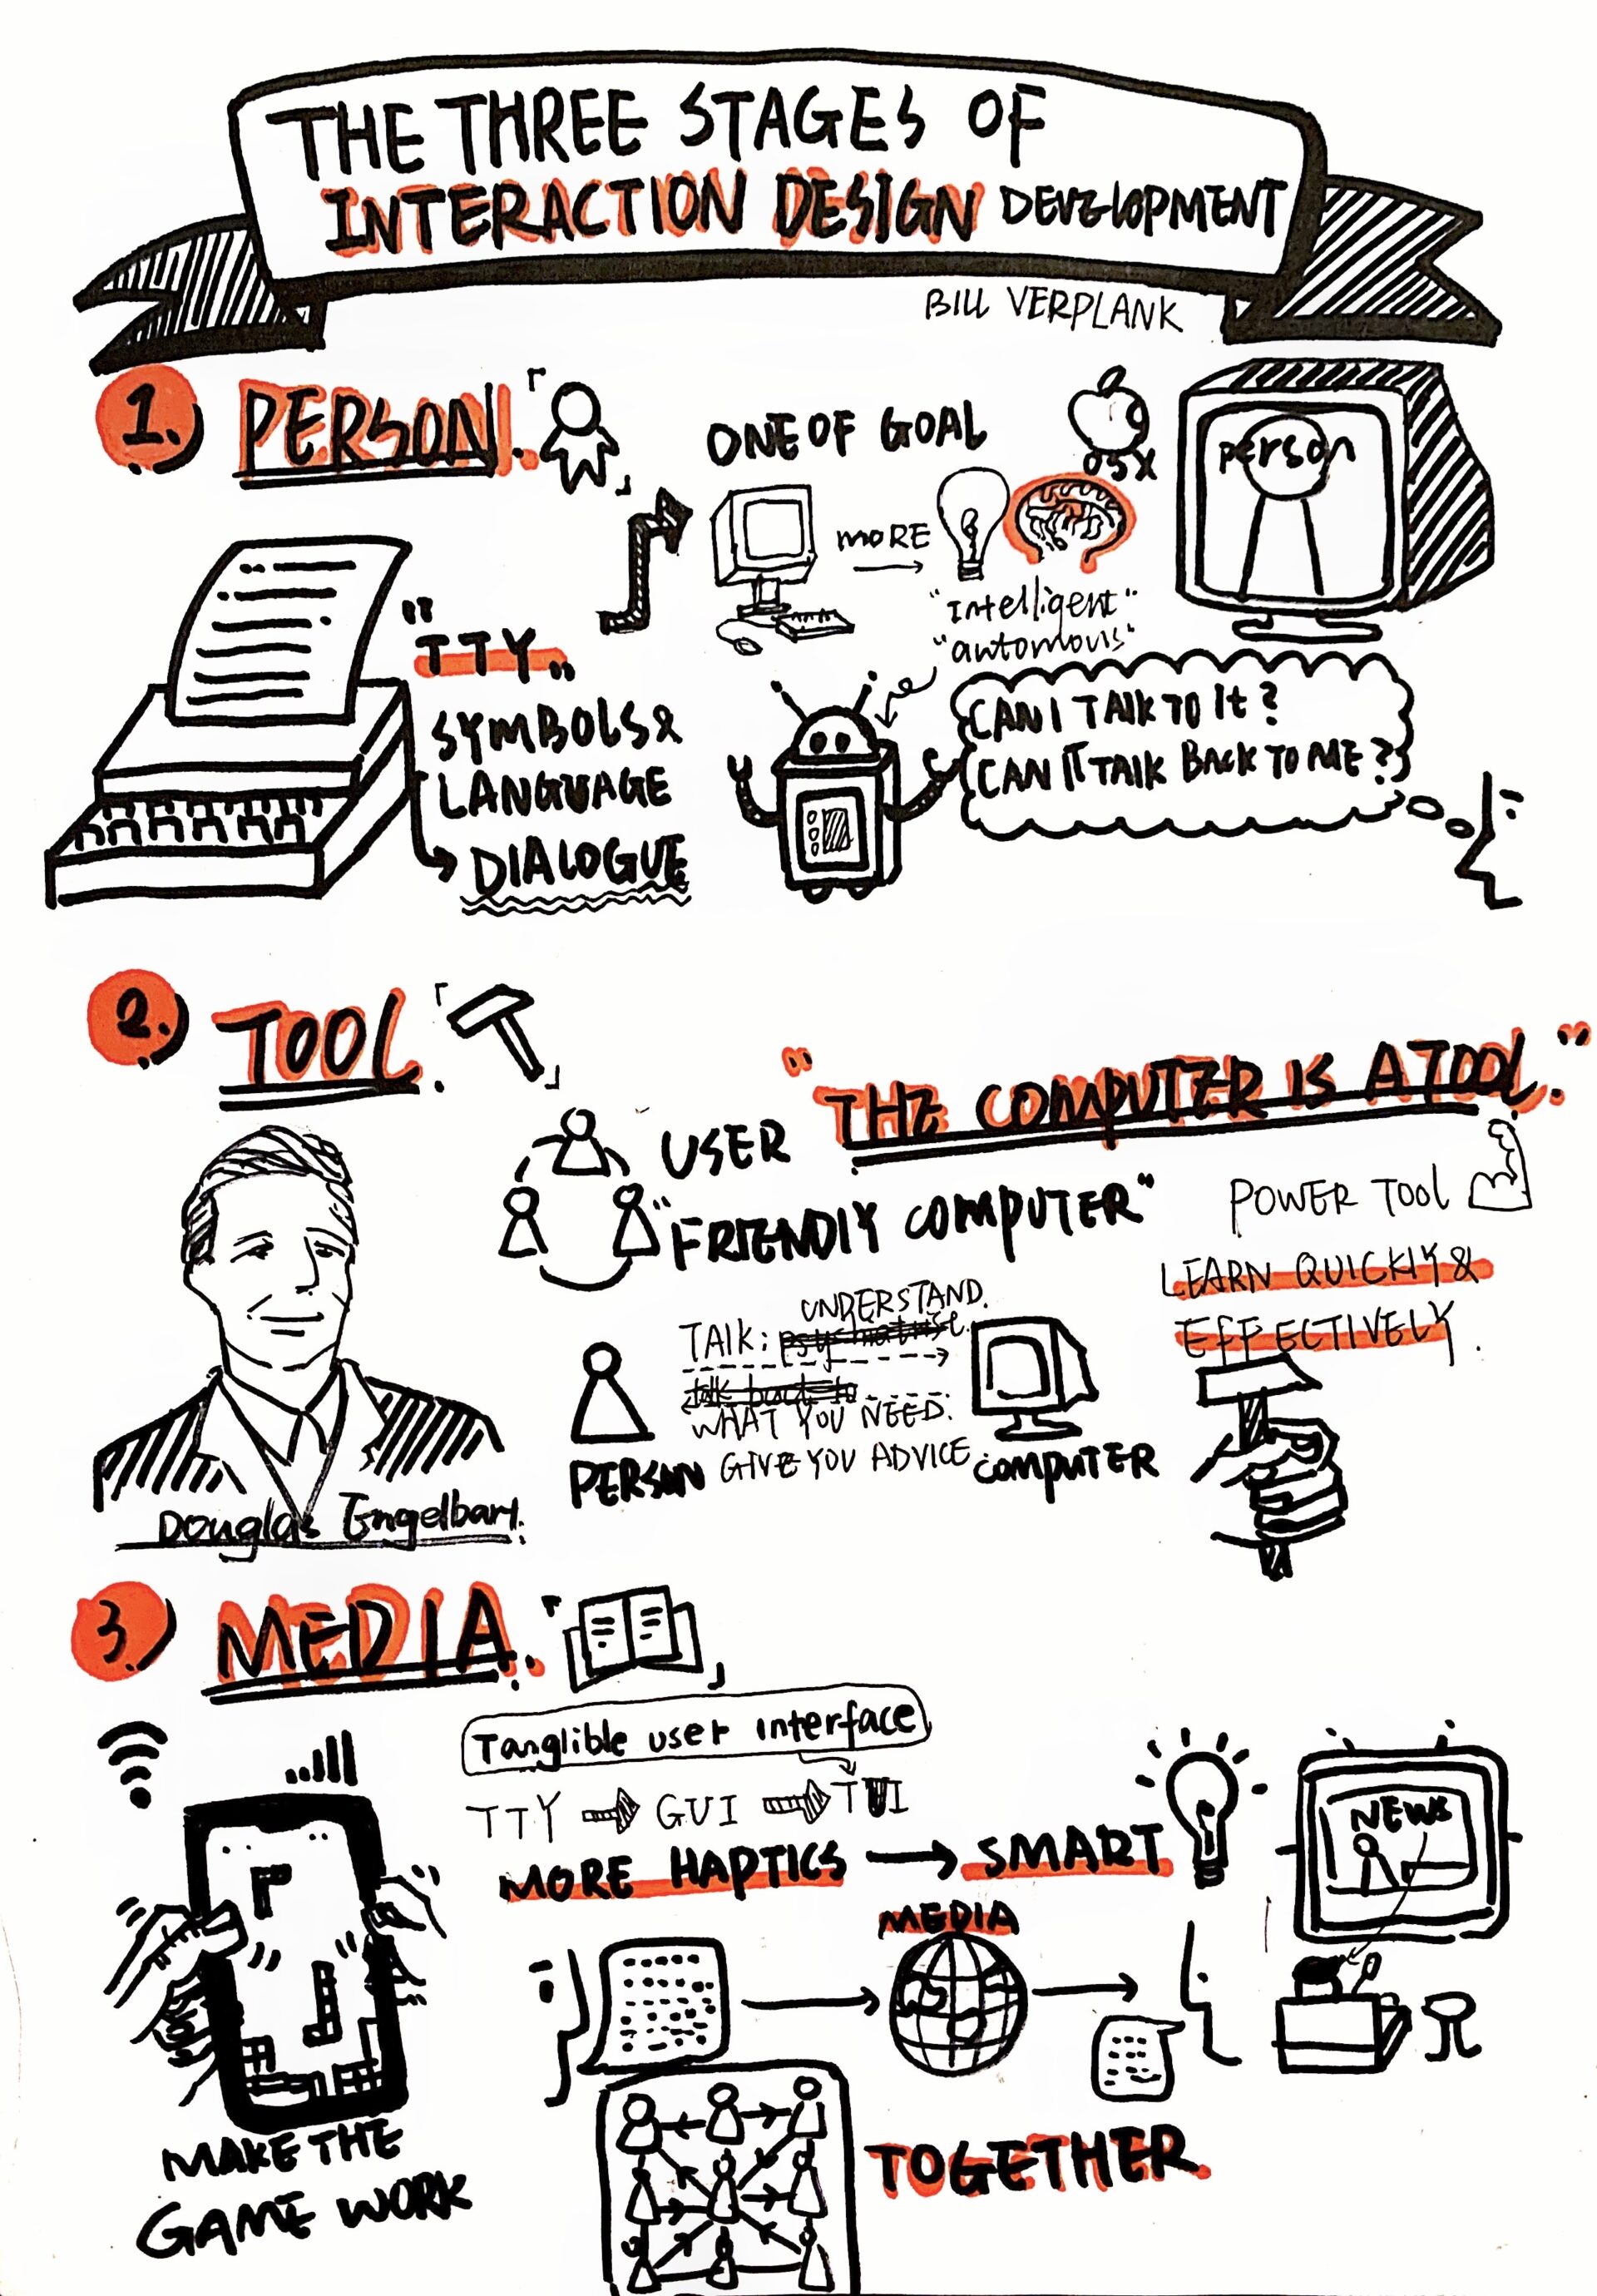 THE THREE STAGES OF
INTERACTION DESIGN DEVELOPMENT
BILL VERPLANK
1. PERSON.
ONE OF GOAL
OSX
person
MORE
"Intelligent"
"automous"
"TTY"
SYMBOLS &
LANGUAGE
DIALOGUE
CAN I TALK TO It?
CAN IT TALK BACK TO ME?
2. TOOL.
"THE COMPUTER IS A TOOL."
USER
"FRIENDLY COMPUTER"
POWER TOOL
LEARN QUICKLY &
EFFECTIVELY.
UNDERSTAND.
TALK:
talk back to
WHAT YOU NEED.
GIVE YOU ADVICE
PERSON
COMPUTER
Douglas Engelbart.
3. MEDIA.
Tanglible user interface
TTY → GUI → TUI
MORE HAPTICS → SMART
NEWS
MEDIA
MAKE THE
GAME WORK
TOGETHER